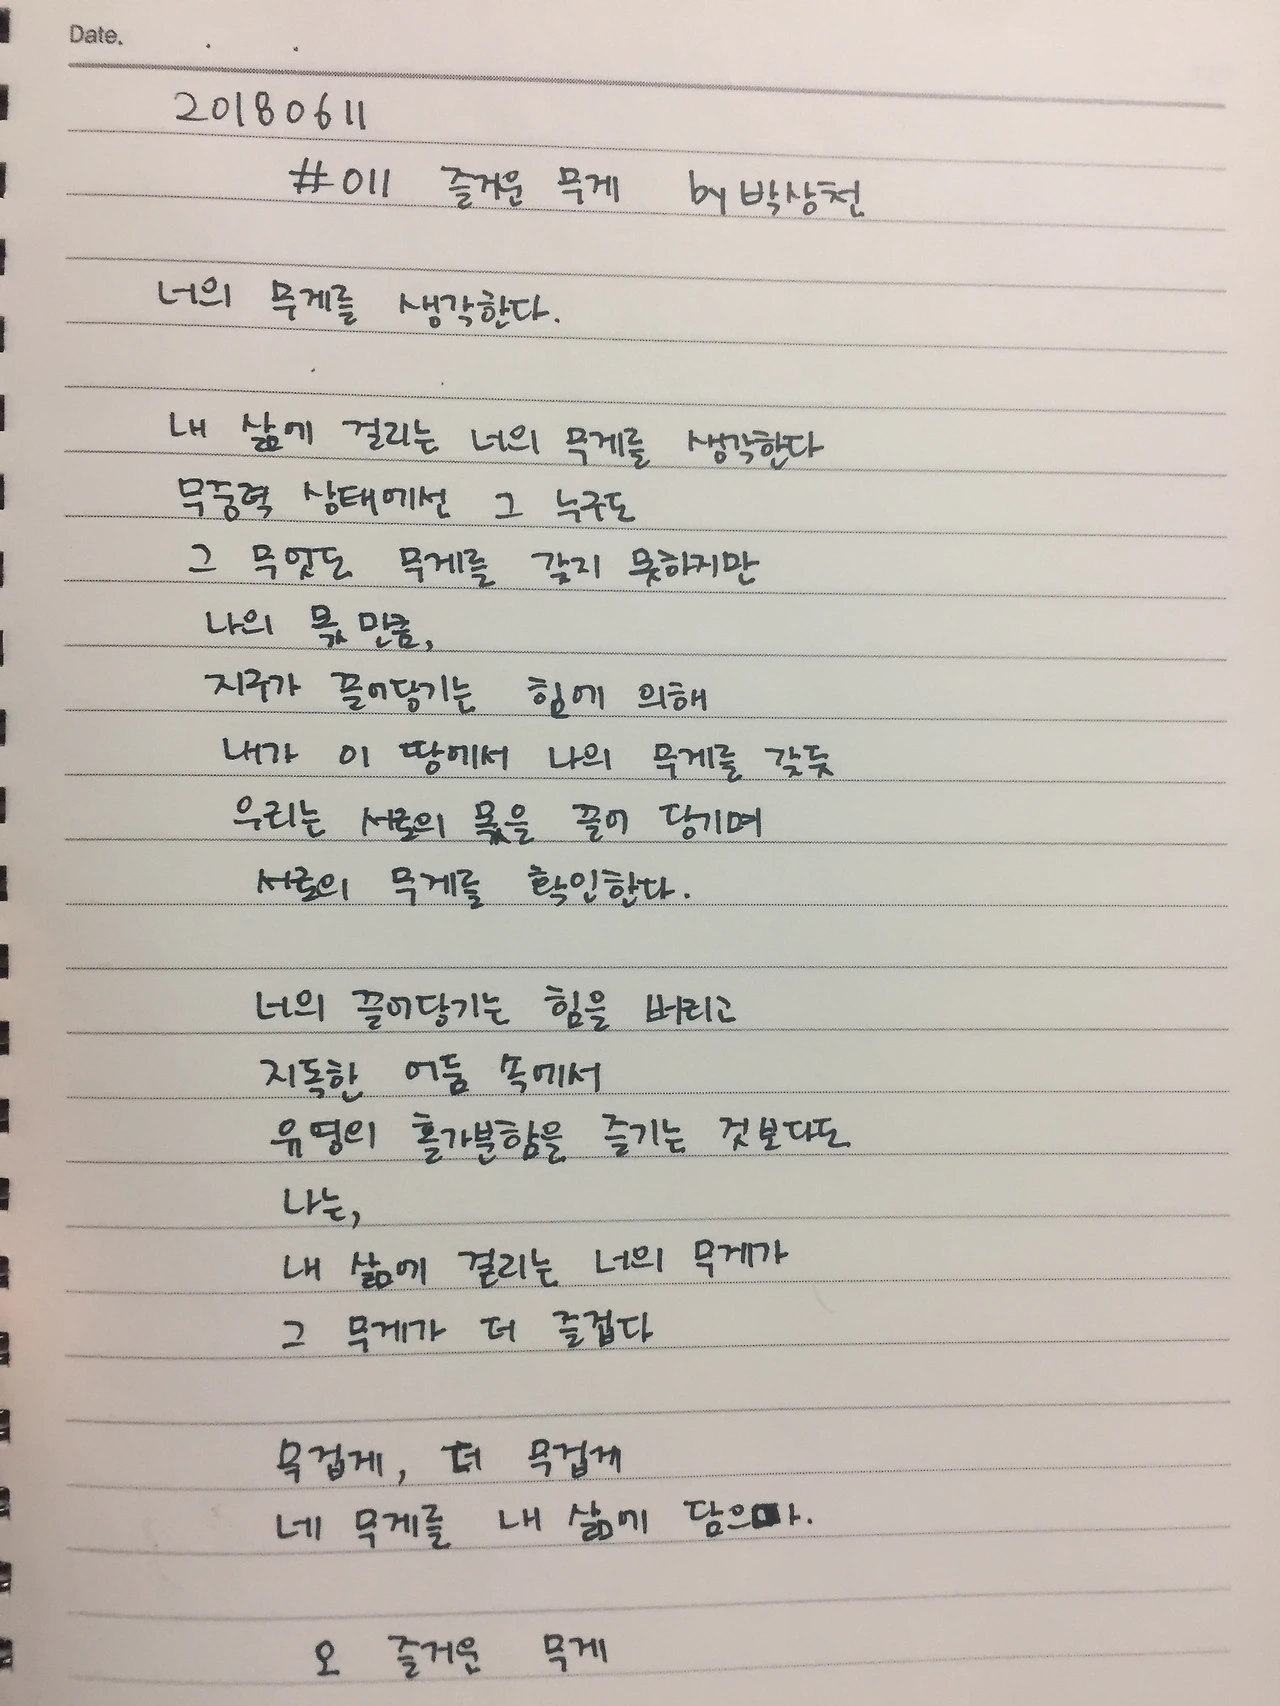 Date.
20180611
#011 즐거운 무게 by 박상천
너의 무게를 생각한다.
내 삶에 걸리는 너의 무게를 생각한다
무중력 상태에선 그 누구도
그 무엇도 무게를 갖지 못하지만
나의 몫 만큼,
지구가 끌어당기는 힘에 의해
내가 이 땅에서 나의 무게를 갖듯
우리는 서로의 몫을 끌어 당기며
서로의 무게를 확인한다.
너의 끌어당기는 힘을 버리고
지독한 어둠 속에서
유영의 홀가분함을 즐기는 것보다도
나는,
내 삶에 걸리는 너의 무게가
그 무게가 더 즐겁다
무겁게, 더 무겁게
네 무게를 내 삶에 담으마.
오 즐거운 무게